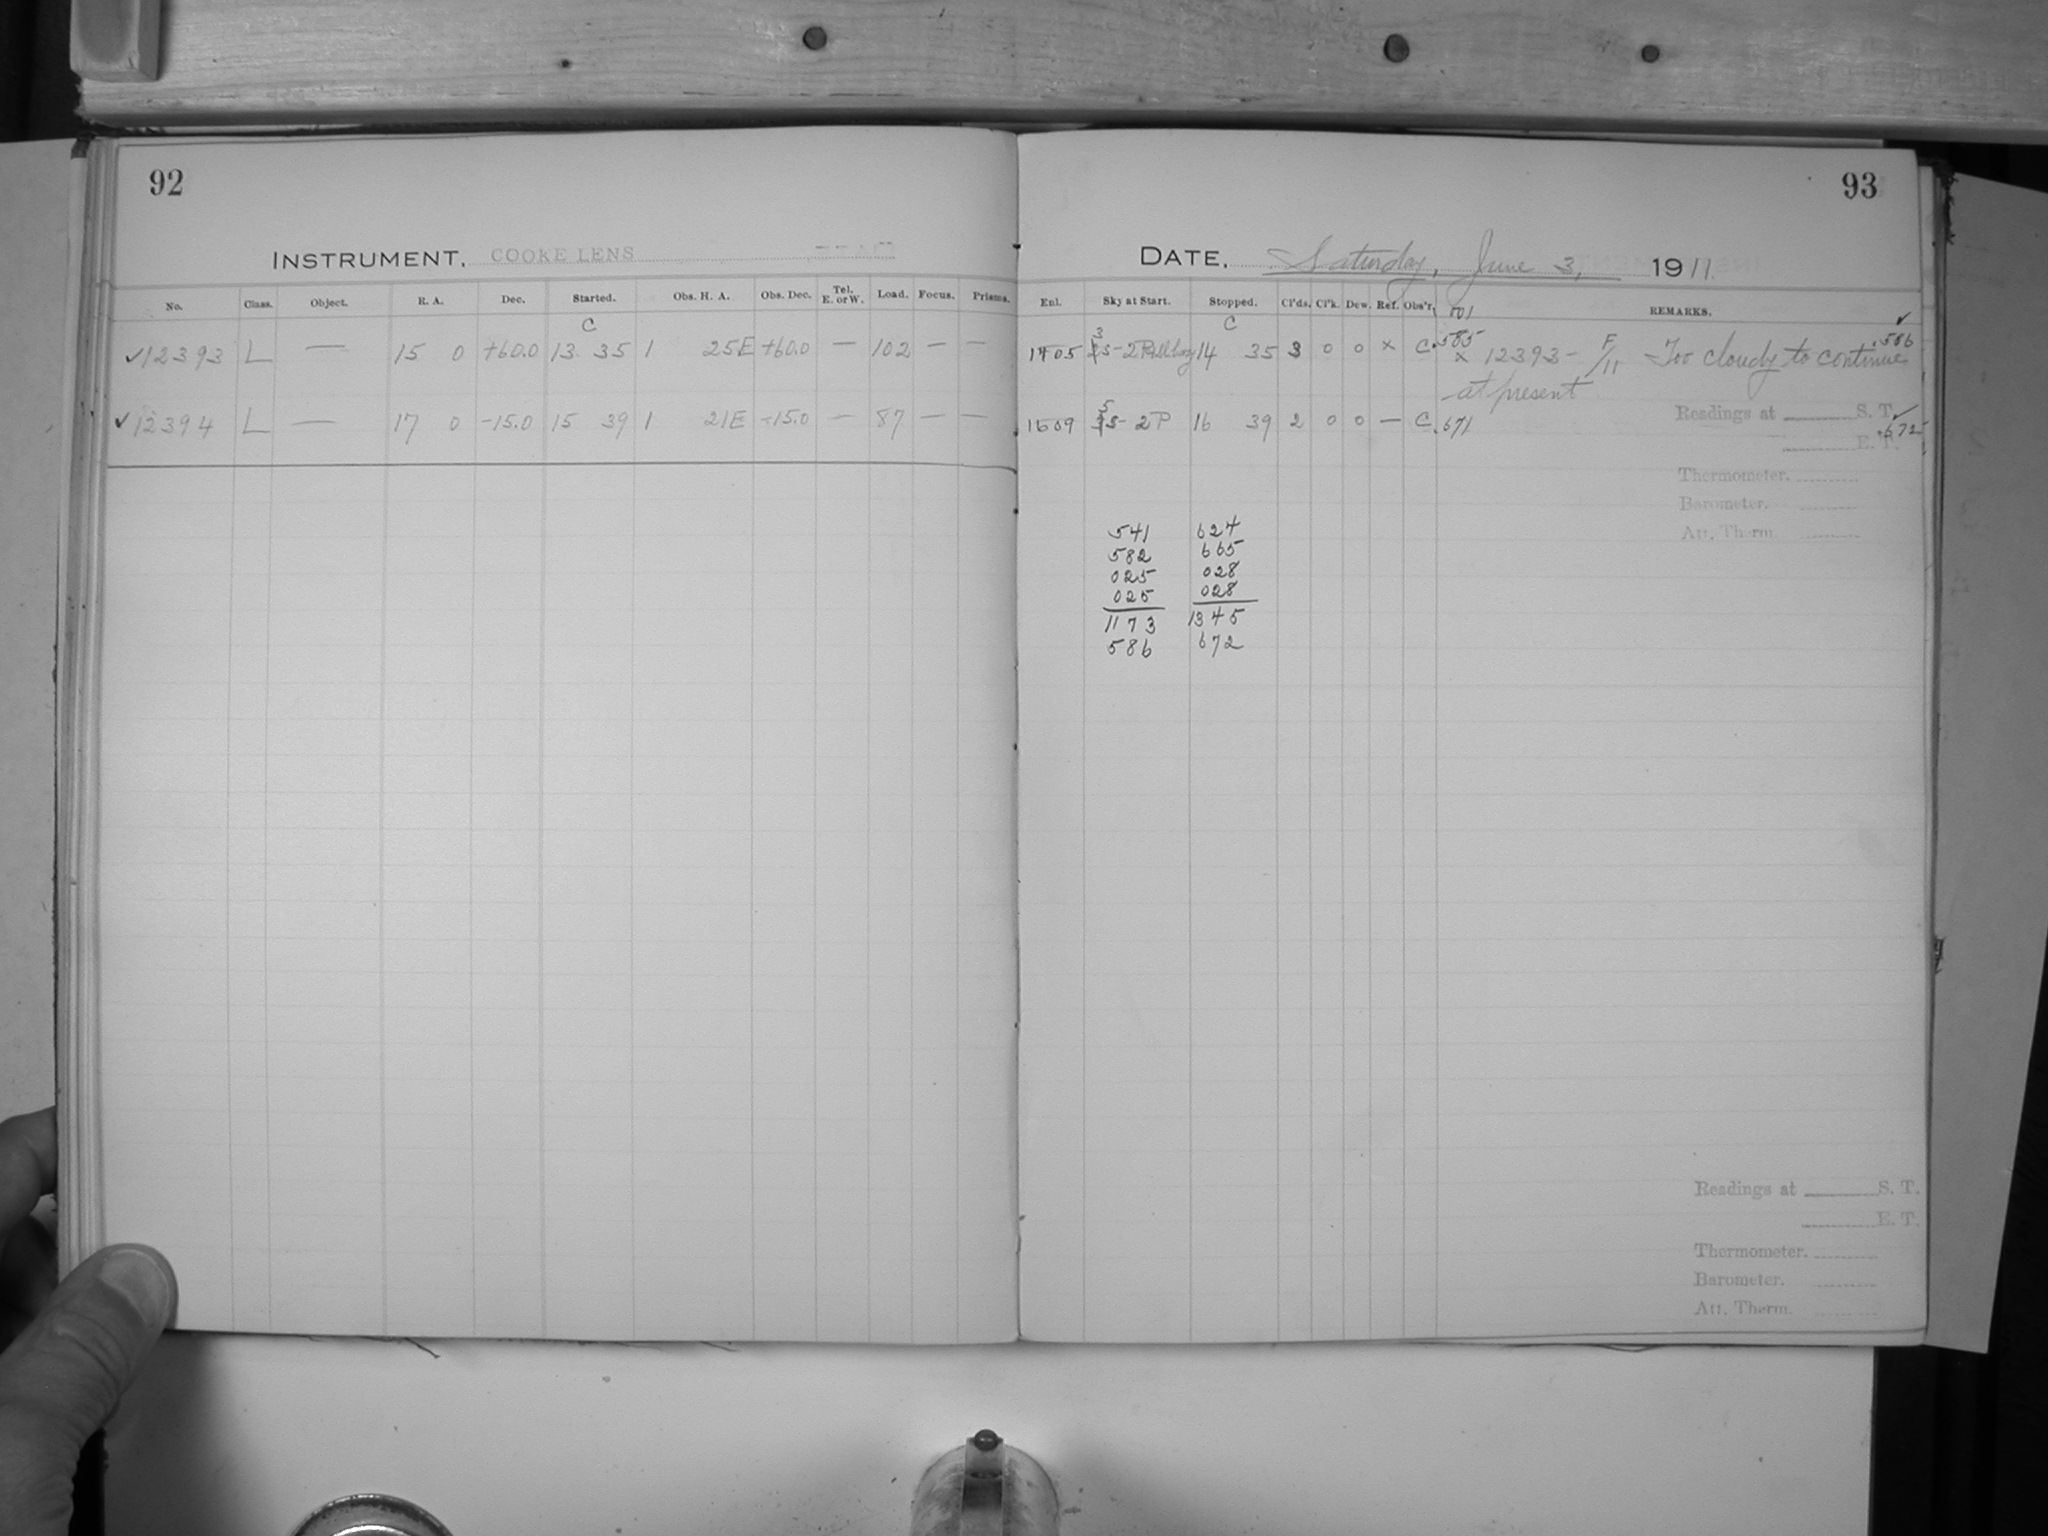 92
INSTRUMENT. COOKE LENS
No. Class. Object. R. A. Dec. Started. Obs. H. A. Obs. Dec. Tel. E. or W. Load. Focus. Prisms.
C
✓12393 L — 15 0 +60.0 13 35 1 25E +60.0 — 102 — —
✓12394 L — 17 0 -15.0 15 39 1 21E -15.0 — 87 — —
93
DATE, Saturday, June 3, 1911.
Enl. Sky at Start. Stopped. Cl'ds. Cl'k. Dew. Ref. Obs'r. REMARKS.
C ✓
1405 14 35 3 0 0 × C. .585 .586
× 12393 - F/11 Too cloudy to continue
at present
1609 2P 16 39 2 0 0 — C .671 ✓ .672
Readings at S. T.
E. T.
Thermometer.
Barometer.
Att. Therm.
541 624
582 665
025 028
025 028
1173 1345
586 672
Readings at S. T.
E. T.
Thermometer.
Barometer.
Att. Therm.